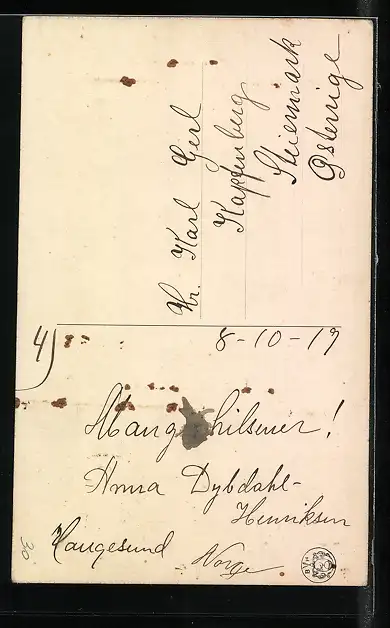 Hr. Karl Gerl
Kapfenberg
Steiermark
Østerrige
4)
8-10-19
Mange hilsener!
Anna Dybdahl-
Henriksen
Haugesund
Norge
30